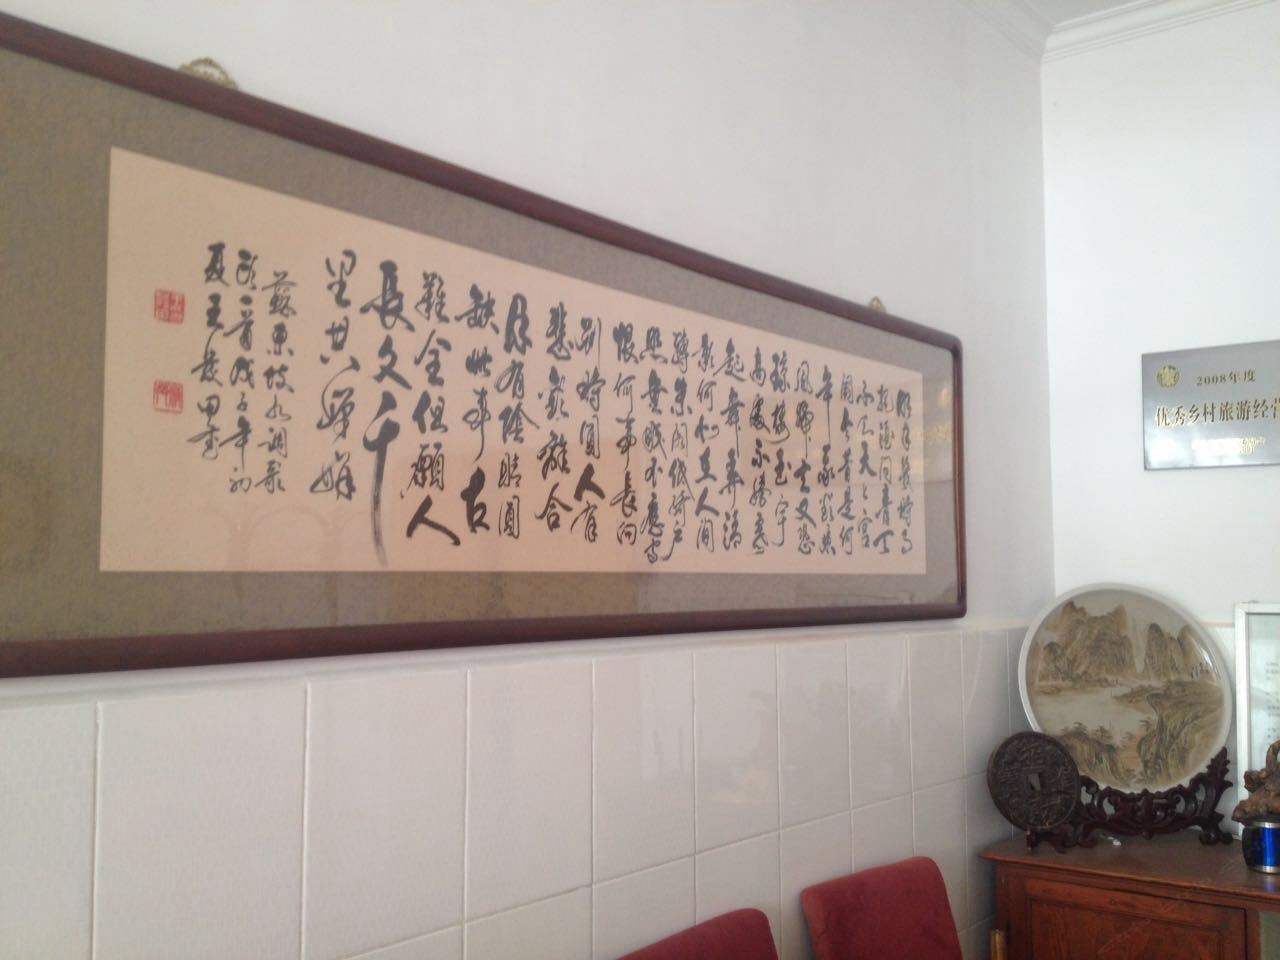 明月幾時有
把酒问青天
不知天上宫
阙今昔是何
年我欲乘
风归去又恐
琼楼玉宇
高處不勝寒
起舞弄清
影何似在人间
轉朱阁低绮户
照無眠不應有
恨何事長向
别時圆人有
悲歡離合
月有陰晴圆
缺此事古
難全但願人
長久千
里共嬋娟
蘇東坡水調歌
頭一首戊子年初
夏王
2008年度
优秀乡村旅游经营